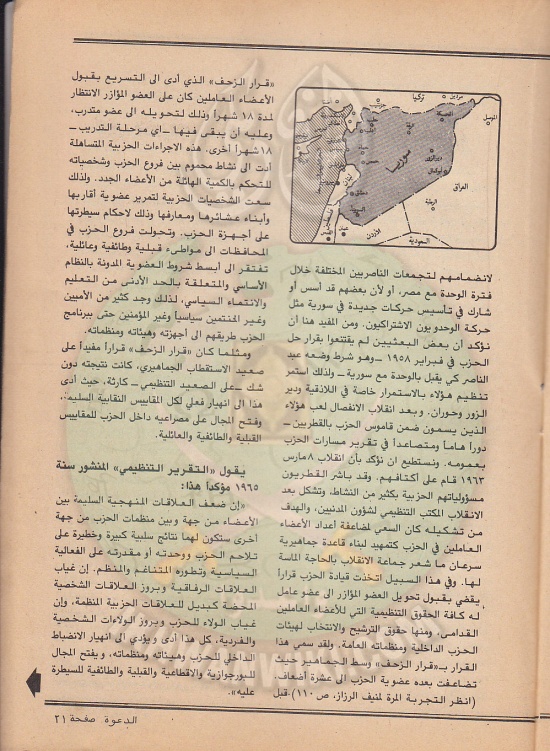 تركيا
ماردين
الموصل
الحسكة
حلب
سوريا
ديرالزور
بوكمال
العراق
حماه
حمص
لبنان
دمشق
الرطبة
عمان
الأردن
السعودية
لانضمامهم لتجمعات الناصريين المختلفة خلال
فترة الوحدة مع مصر، أو لأن بعضهم قد أسس أو
شارك في تأسيس حركات جديدة في سورية مثل
حركة الوحدويون الاشتراكيون. ومن المفيد هنا أن
نؤكد أن بعض البعثيين لم يقتنعوا بقرار حل
الحزب في فبراير ١٩٥٨ ــ وهو شرط وضعه عبد
الناصر كي يقبل بالوحدة مع سورية ــ ولذلك استمر
تنظيم هؤلاء بالاستمرار خاصة في اللاذقية ودير
الزور وحوران. وبعد انقلاب الانفصال لعب هؤلاء
الذين يسمون ضمن قاموس الحزب بالقطريين ــ
دوراً هاماً ومتصاعداً في تقرير مسارات الحزب
بعمومه. ونستطيع ان نؤكد بأن انقلاب ٨ مارس
١٩٦٣ قام على أكتافهم. وقد باشر القطريون
مسؤولياتهم الحزبية بكثير من النشاط، وتشكل بعد
الانقلاب المكتب التنظيمي لشؤون المدنيين، والهدف
من تشكيله كان السعي لمضاعفة أعداد الأعضاء
العاملين في الحزب كتمهيد لبناء قاعدة جماهيرية
سرعان ما شعر جماعة الانقلاب بالحاجة الماسة
لها. وفي هذا السبيل اتخذت قيادة الحزب قراراً
يقضي بقبول تحويل العضو المؤازر الى عضو عامل
له كافة الحقوق التنظيمية التي للأعضاء العاملين
القدامى، ومنها حقوق الترشيح والانتخاب لهيئات
الحزب الداخلية ومنظماته العامة. ولقد سمي هذا
القرار بـ«قرار الزحف» وسط الجماهير حيث
تضاعفت بعده عضوية الحزب الى عشرة أضعاف.
(انظر التجربة المرة لمنيف الرزاز، ص ١١٠) قبل
«قرار الزحف» الذي أدى الى التسريع بقبول
الأعضاء العاملين كان على العضو المؤازر الانتظار
لمدة ١٨ شهراً وذلك لتحويله الى عضو متدرب،
وعليه أن يبقى فيها ــ اي مرحلة التدريب ــ
١٨ شهراً أخرى. هذه الاجراءات الحزبية المتساهلة
أدت الى نشاط محموم بين فروع الحزب وشخصياته
للتحكم بالكمية الهائلة من الأعضاء الجدد. ولذلك
سعت الشخصيات الحزبية لتمرير عضوية أقاربها
وأبناء عشائرها ومعارفها وذلك لاحكام سيطرتها
على أجهزة الحزب. وتحولت فروع الحزب في
المحافظات الى مواطىء قبلية وطائفية وعائلية،
تفتقر الى أبسط شروط العضوية المدونة بالنظام
الأساسي والمتعلقة بالحد الأدنى من التعليم
والانتماء السياسي، لذلك وجد كثير من الأميين
وغير المنتمين سياسياً وغير المؤمنين حتى ببرنامج
الحزب طريقهم الى أجهزته وهيئاته ومنظماته.
ومثلما كان «قرار الزحف» قراراً مفيداً على
صعيد الاستقطاب الجماهيري، كانت نتيجته دون
شك ــ على الصعيد التنظيمي ــ كارثة، حيث أدى
هذا الى انهيار فعلي لكل المقاييس النقابية السليمة،
وفتح المجال على مصراعيه داخل الحزب للمقاييس
القبلية والطائفية والعائلية.
يقول «التقرير التنظيمي» المنشور سنة
١٩٦٥ مؤكداً هذا:
«إن ضعف العلاقات المنهجية السليمة بين
الأعضاء من جهة وبين منظمات الحزب من جهة
أخرى ستكون لهما نتائج سلبية كبيرة وخطيرة على
تلاحم الحزب ووحدته أو مقدرته على الفعالية
السياسية وتطوره المتناغم والمنظم. إن غياب
العلاقات الرفاقية وبروز العلاقات الشخصية
المحضة كبديل للعلاقات الحزبية المنظمة، وإن
غياب الولاء للحزب وبروز الولاءات الشخصية
والفردية، كل هذا أدى ويؤدي الى انهيار الانضباط
الداخلي للحزب وهيئاته ومنظماته، و يفتح المجال
للبورجوازية والاقطاعية والقبلية والطائفية للسيطرة
عليه».
الدعوة صفحة ٢١